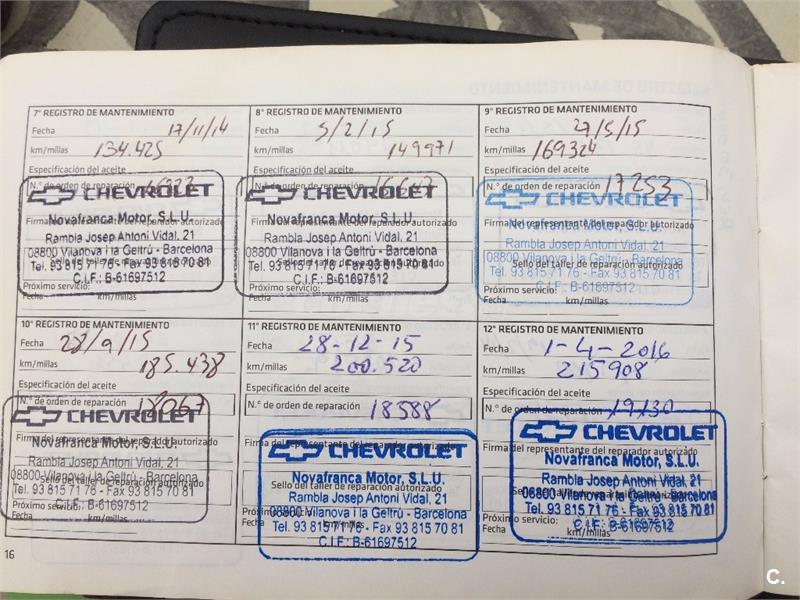 7º REGISTRO DE MANTENIMIENTO
Fecha 17/11/14
km/millas 134.425
Especificación del aceite
N.º de orden de reparación
CHEVROLET
Firma del representante del reparador autorizado
Novafranca Motor, S.L.U.
Rambla Josep Antoni Vidal, 21
08800 Vilanova i la Geltrú - Barcelona
Sello del taller de reparación autorizado
Tel. 93 815 71 76 - Fax 93 815 70 81
C.I.F.: B-61697512
Próximo servicio:
Fecha km/millas
8º REGISTRO DE MANTENIMIENTO
Fecha 5/2/15
km/millas 149971
Especificación del aceite
N.º de orden de reparación
CHEVROLET
Firma del representante del reparador autorizado
Novafranca Motor, S.L.U.
Rambla Josep Antoni Vidal, 21
08800 Vilanova i la Geltrú - Barcelona
Sello del taller de reparación autorizado
Tel. 93 815 71 76 - Fax 93 815 70 81
C.I.F.: B-61697512
Próximo servicio:
Fecha km/millas
9º REGISTRO DE MANTENIMIENTO
Fecha 27/5/15
km/millas 169324
Especificación del aceite
N.º de orden de reparación 17253
CHEVROLET
Firma del representante del reparador autorizado
Novafranca Motor, S.L.U.
Rambla Josep Antoni Vidal, 21
08800 Vilanova i la Geltrú - Barcelona
Sello del taller de reparación autorizado
Tel. 93 815 71 76 - Fax 93 815 70 81
C.I.F.: B-61697512
Próximo servicio:
Fecha km/millas
10º REGISTRO DE MANTENIMIENTO
Fecha 28/9/15
km/millas 185.438
Especificación del aceite
N.º de orden de reparación 18067
CHEVROLET
Firma del representante del reparador autorizado
Novafranca Motor, S.L.U.
Rambla Josep Antoni Vidal, 21
08800 Vilanova i la Geltrú - Barcelona
Sello del taller de reparación autorizado
Tel. 93 815 71 76 - Fax 93 815 70 81
Próximo servicio:
C.I.F.: B-61697512
Fecha km/millas
11º REGISTRO DE MANTENIMIENTO
Fecha 28-12-15
km/millas 200.520
Especificación del aceite
N.º de orden de reparación 18588
Firma del representante del reparador autorizado
CHEVROLET
Novafranca Motor, S.L.U.
Sello del taller de reparación autorizado
Rambla Josep Antoni Vidal, 21
08800 Vilanova i la Geltrú - Barcelona
Próximo servicio:
Fecha km/millas
Tel. 93 815 71 76 - Fax 93 815 70 81
C.I.F.: B-61697512
12º REGISTRO DE MANTENIMIENTO
Fecha 1-4-2016
km/millas 215908
Especificación del aceite
N.º de orden de reparación 19130
CHEVROLET
Firma del representante del reparador autorizado
Novafranca Motor, S.L.U.
Rambla Josep Antoni Vidal, 21
Sello del taller de reparación autorizado
08800 Vilanova i la Geltrú - Barcelona
Tel. 93 815 71 76 - Fax 93 815 70 81
Próximo servicio:
C.I.F.: B-61697512
Fecha km/millas
16
C.